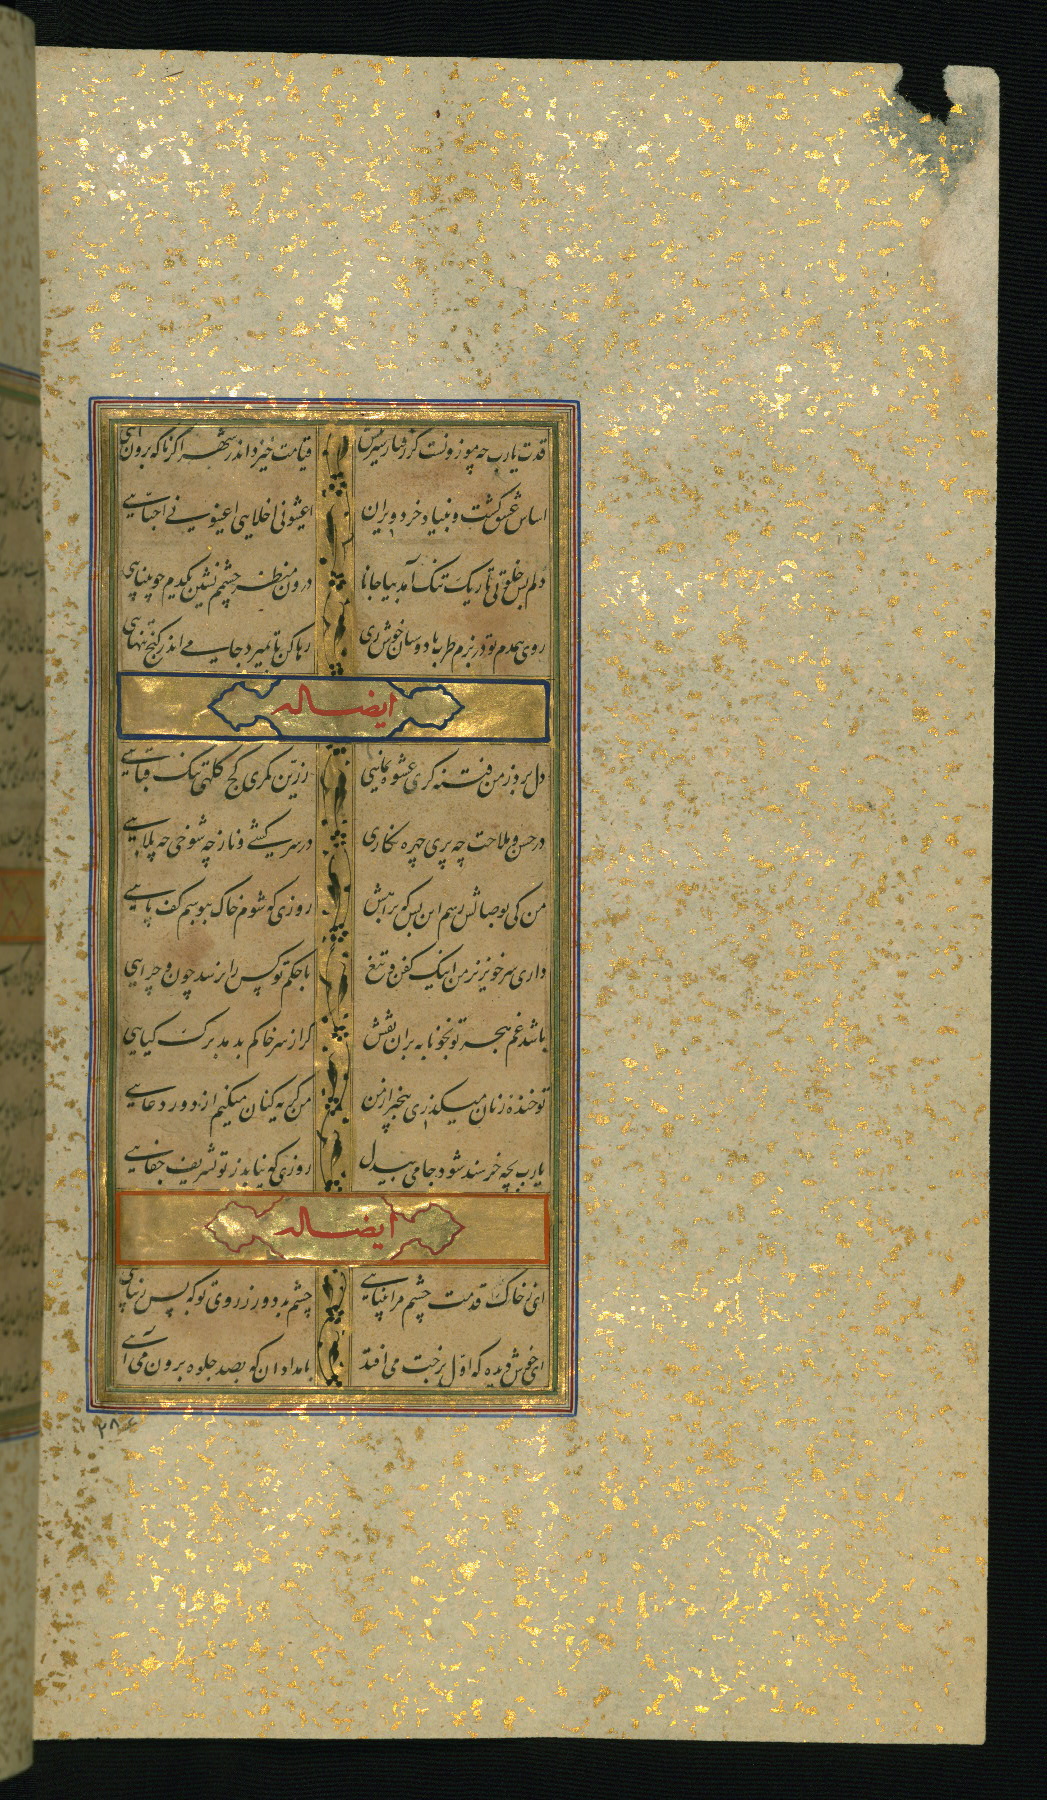 قدت یارب چه موزونست کز رفتار شیرینش قیامت خیزد اندر شهر اگر ناگه برون آیی
اساس عشق گشت و بنیاد خرد ویران اعیشونی اخلایی اعینونی احبایی
دلم بس خلوتی تاریک تنگ آمد بیا جانا درون منظر چشمم نشین یکدم چو بینایی
روی همدم تو در بزم طرب با دوستان خوش خوری رها کن تا بمیرد جامی اندر کنج تنهایی
ایضا له
دل برد ز من فتنه کری عشوه نمایی زرین کمری کج کلهی تنک قبایی
در حسن و ملاحت چه پری چهره نکاری در سرکشی و ناز چه شوخی چه بلایی
من کی بوصالش رسم این بس که براهش روزی که شوم خاک ببوسم کف پایی
داری سر خونریز من اینک کفن و تیغ با حکم تو کس را نرسد چون و چرایی
باشد غم هجر تو بخونابه بران نقش کر از سر خاکم بدمد برک کیایی
تو خنده زنان میکذری بیخبر از من من کریه کنان میکنم از دور دعایی
یارب بچه خرسند شود جامی بیدل روزی که نیابد ز تو تشریف جفایی
ایضا له
ای ز خاک قدمت چشم مرا بینایی چشم بد دور ز روی تو که بس زیبایی
ای خوش آن دیده که اول برخت می افتد بامدادان که بصد جلوه برون می آیی